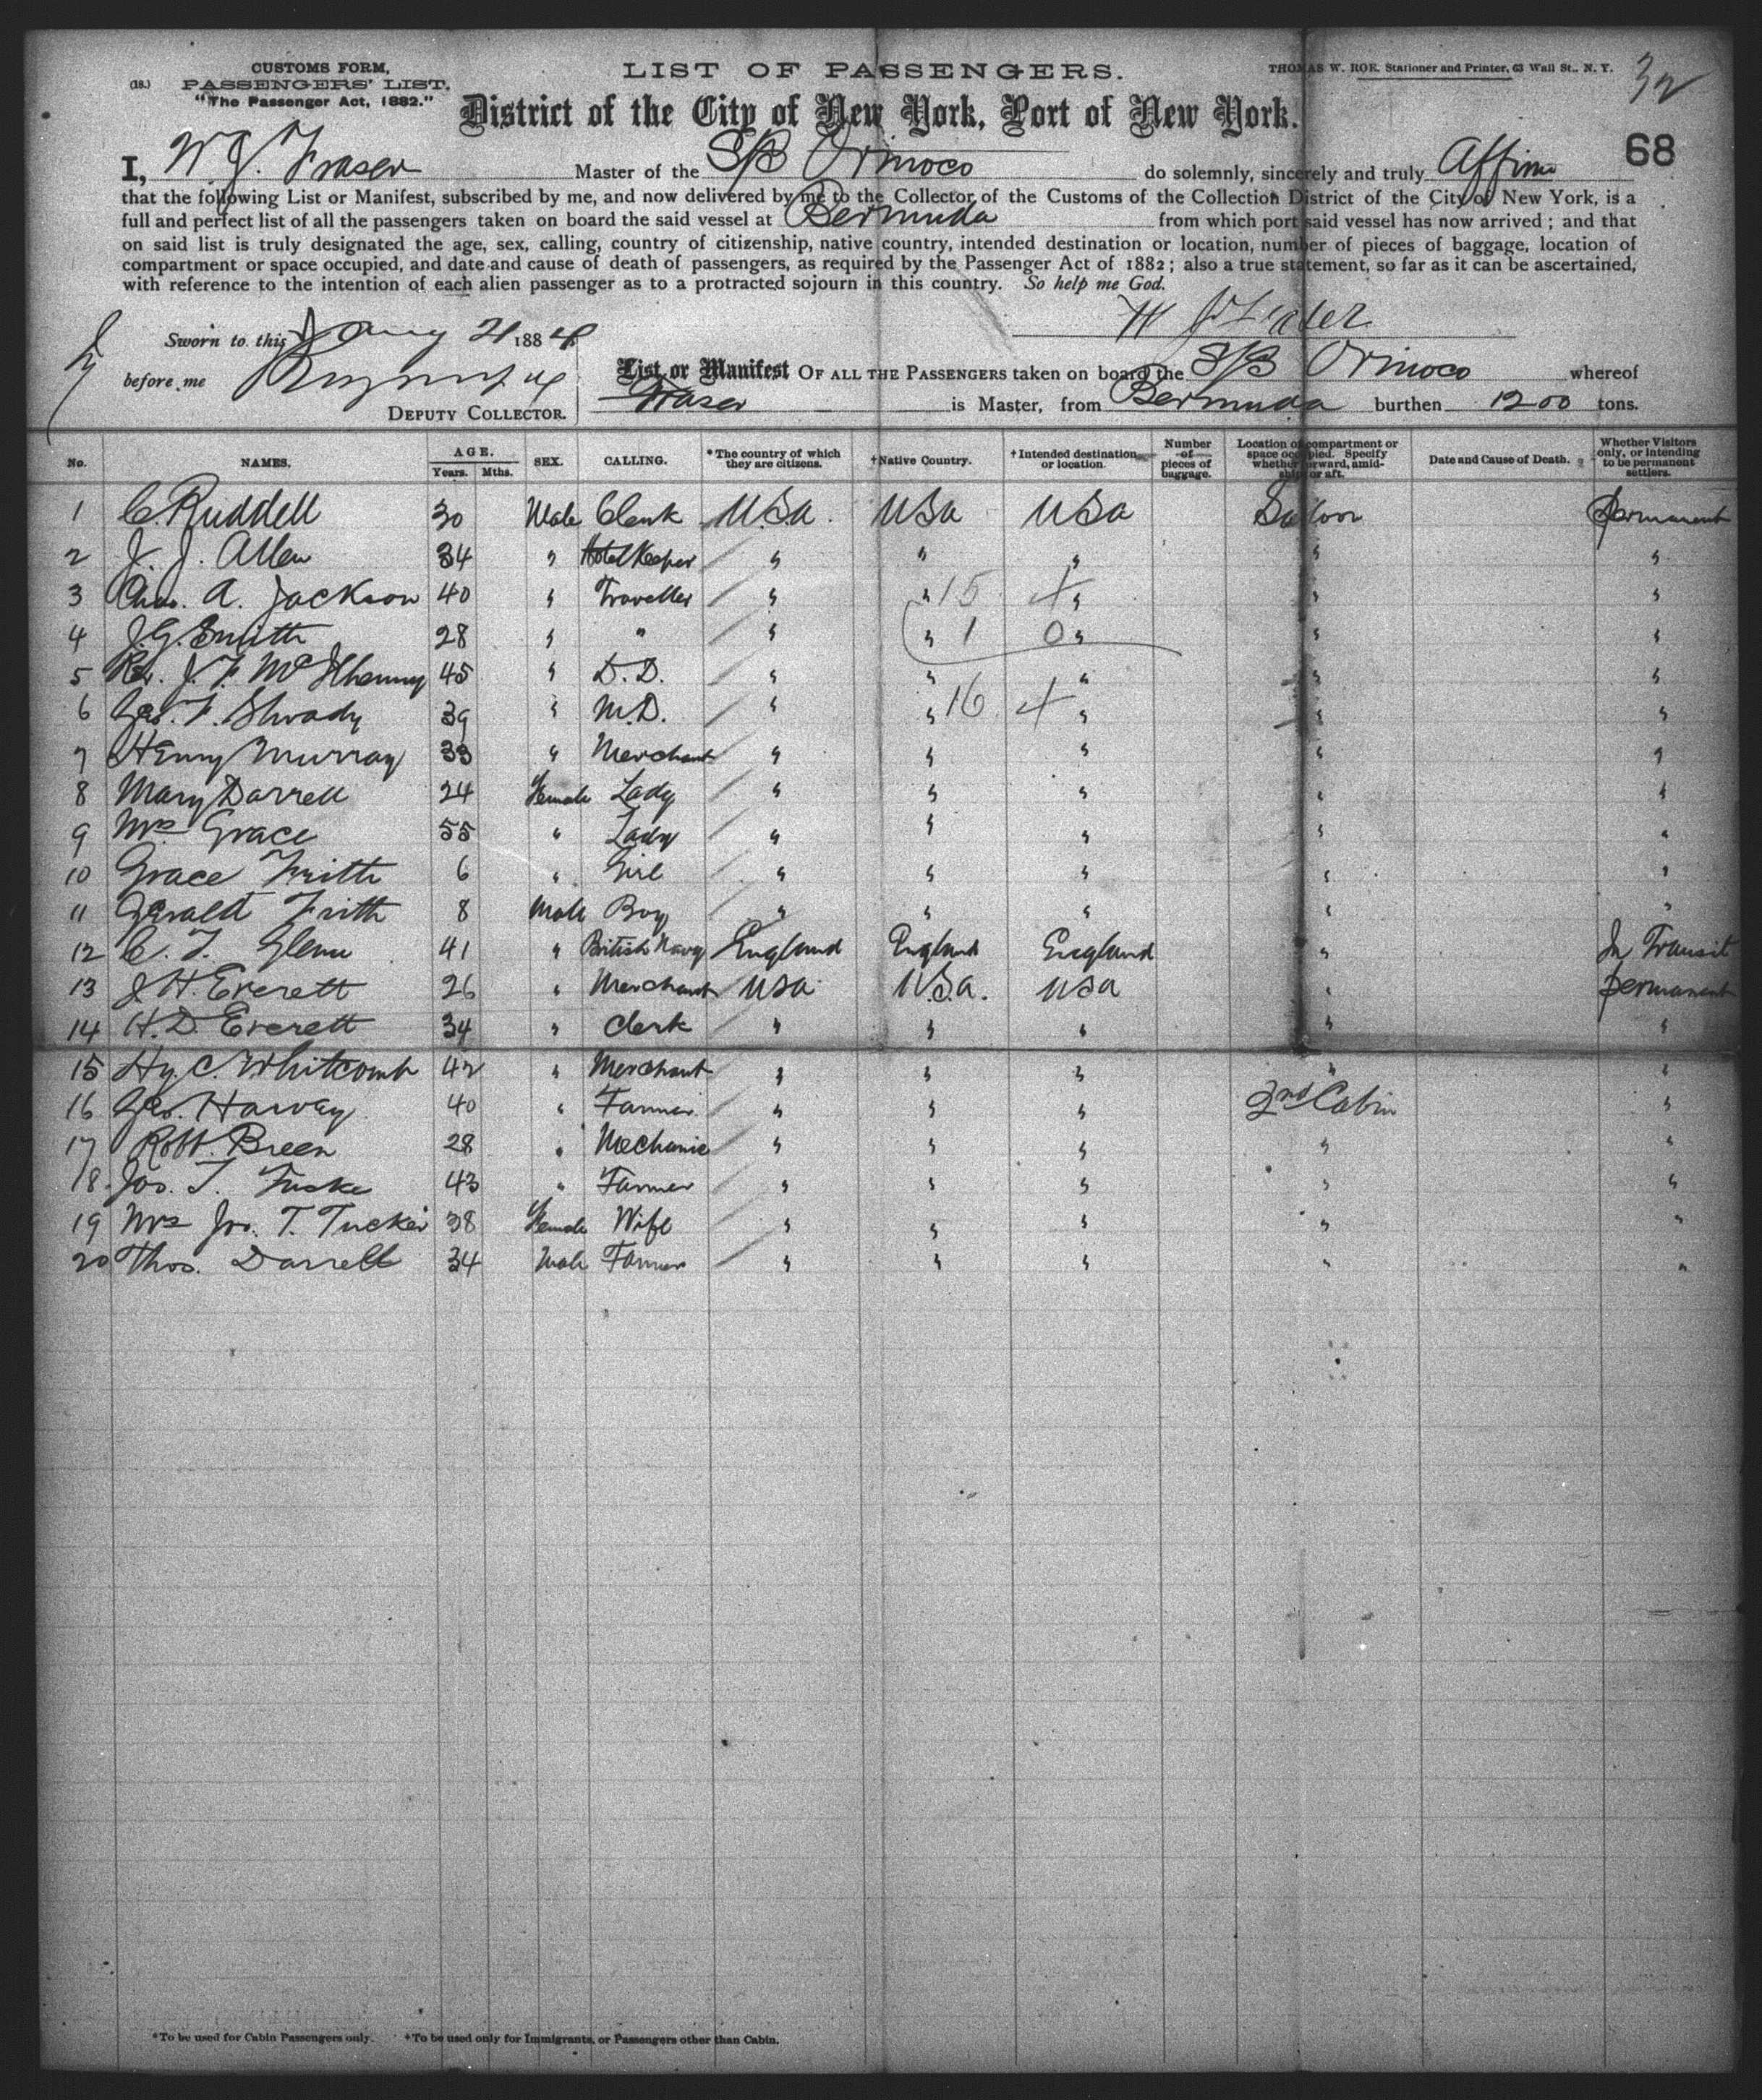 CUSTOMS FORM,
(18.) PASSENGERS' LIST.
"The Passenger Act, 1882."
LIST OF PASSENGERS.
THOMAS W. ROE. Stationer and Printer, 63 Wall St., N. Y.
32
District of the City of New York, Port of New York.
68
I, W J. Fraser Master of the S/S Orinoco do solemnly, sincerely and truly Affirm
that the following List or Manifest, subscribed by me, and now delivered by me to the Collector of the Customs of the Collection District of the City of New York, is a
full and perfect list of all the passengers taken on board the said vessel at Bermuda from which port said vessel has now arrived ; and that
on said list is truly designated the age, sex, calling, country of citizenship, native country, intended destination or location, number of pieces of baggage, location of
compartment or space occupied, and date and cause of death of passengers, as required by the Passenger Act of 1882 ; also a true statement, so far as it can be ascertained,
with reference to the intention of each alien passenger as to a protracted sojourn in this country. So help me God.
W J Fraser
Sworn to this Aug 21 1884
before me
DEPUTY COLLECTOR.
List or Manifest OF ALL THE PASSENGERS taken on board the S/S Orinoco whereof
Fraser is Master, from Bermuda burthen 1200 tons.
No. NAMES. AGE. Years. Mths. SEX. CALLING. *The country of which they are citizens. †Native Country. †Intended destination or location. Number of pieces of baggage. Location of compartment or space occupied. Specify whether forward, amidships or aft. Date and Cause of Death. Whether Visitors only, or intending to be permanent settlers.
1 C. Ruddell 30 Male Clerk USa. USa USa Saloon Permanent
2 J. J. Allen 34 " Hotel Keeper " " " " "
3 Chas. A. Jackson 40 " Traveller " " 15 4 " " "
4 J. G. Smith 28 " " " " 1 0 " " "
5 J. F. McIlhenny 45 " D. D. " " " " "
6 Geo. F. Shrady 39 " M.D. " " 16 4 " " "
7 Henry Murray 33 " Merchant " " " " "
8 Mary Darrell 24 Female Lady " " " " "
9 Mrs Grace 55 " Lady " " " " "
10 Grace Frith 6 " Girl " " " " "
11 Gerald Frith 8 Male Boy " " " " "
12 C. F. Glenn 41 " British Navy England England England " In Transit
13 J H. Everett 26 " Merchant USa U.S.a. USa " permanent
14 H. D. Everett 34 " Clerk " " " " "
15 Hy. C. Whitcomb 42 " Merchant " " " " "
16 Geo. Harvey 40 " Farmer " " " 2nd Cabin "
17 Robt. Breen 28 " Mechanic " " " " "
18. Jos. T. 43 " Farmer " " " " "
19 Mrs Jos. T. Tucker 38 Female Wife " " " " "
20 Thos. Darrell 34 Male Farmer " " " " "
*To be used for Cabin Passengers only. †To be used only for Immigrants, or Passengers other than Cabin.